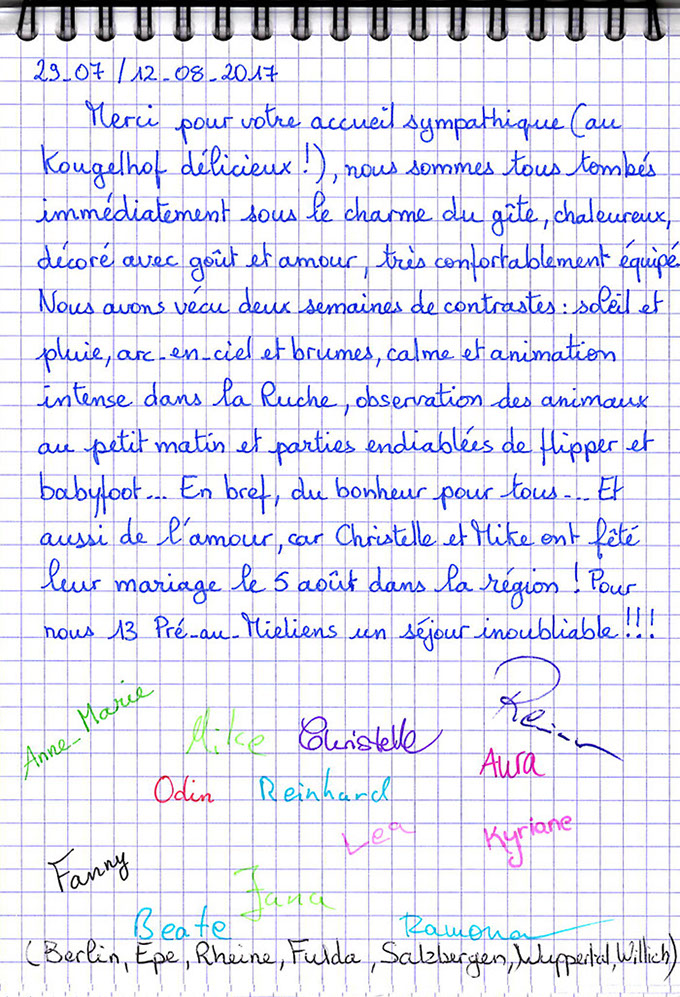 29_07 / 12_08_2017
Merci pour votre accueil sympathique (au
Kougelhof délicieux !), nous sommes tous tombés
immédiatement sous le charme du gîte, chaleureux,
décoré avec goût et amour, très confortablement équipé.
Nous avons vécu deux semaines de contrastes : soleil et
pluie, arc_en_ciel et brumes, calme et animation
intense dans la Ruche, observation des animaux
au petit matin et parties endiablées de flipper et
babyfoot... En bref, du bonheur pour tous... Et
aussi de l'amour, car Christelle et Mike ont fêté
leur mariage le 5 août dans la région ! Pour
nous 13 Pré_au_Mieliens un séjour inoubliable !!!
Anne_Marie Mike Christelle
Odin Reinhard Aura
Lea Kyriane
Fanny Jana
Beate Ramona
(Berlin, Epe, Rheine, Fulda, Salzbergen, Wuppertal, Willich)